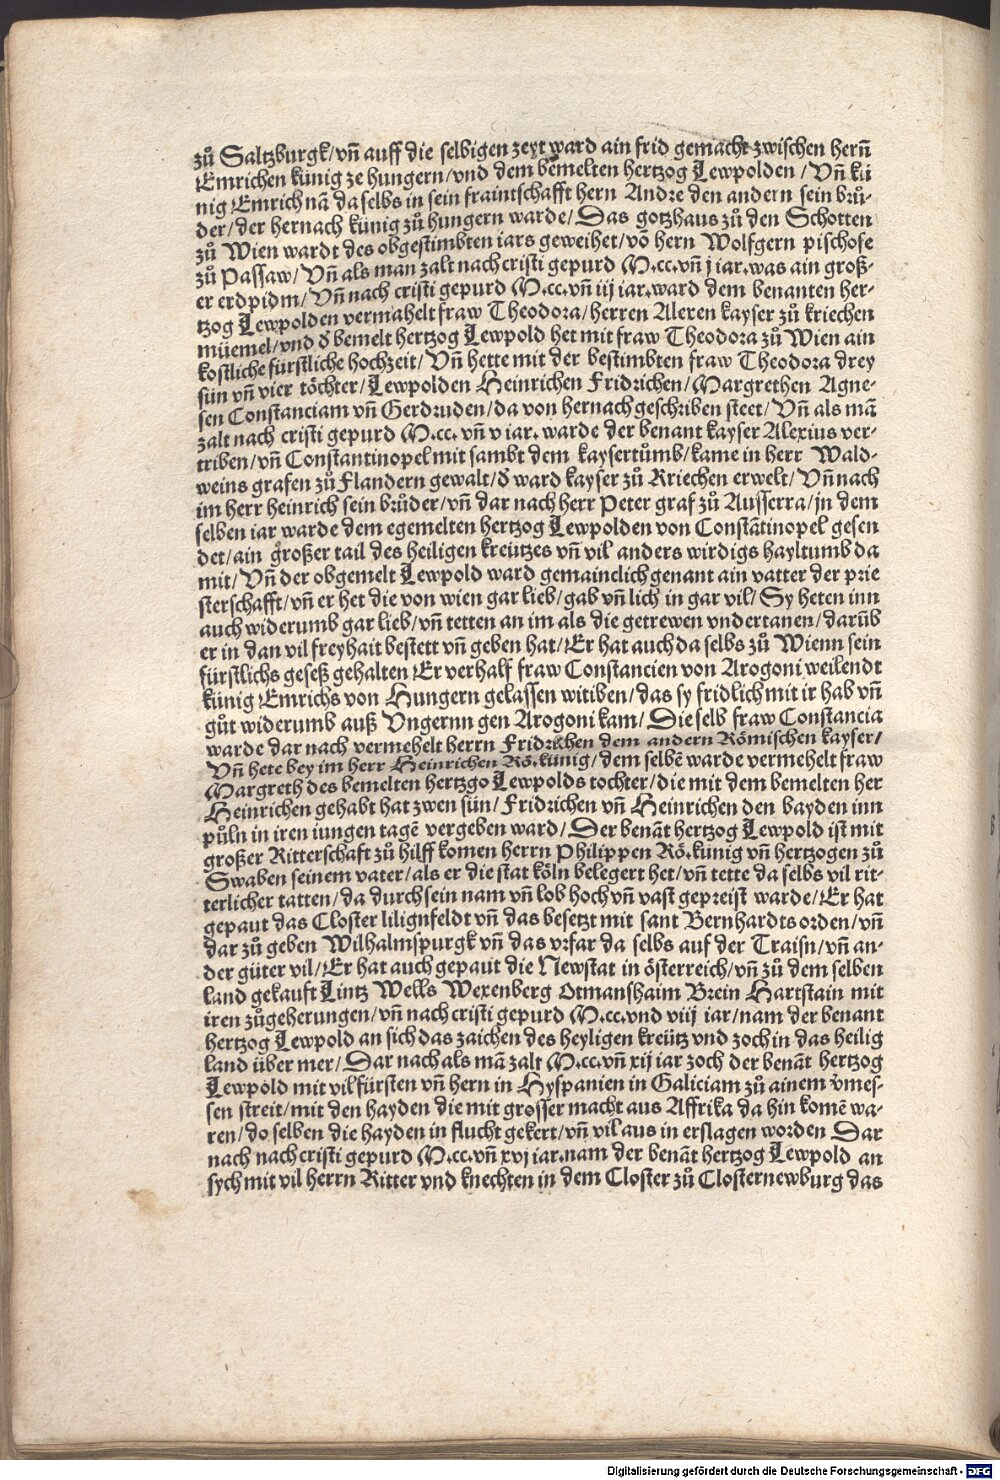 zů Saltzburgk/vñ auff die selbigen zeyt ward ain frid gemacht zwischen herñ
Emrichen künig ze hungern/vnd dem bemelten hertzog Lewpolden/Vñ kü
nig Emrich nã daselbs in sein fraintschafft hern Andre den andern sein brů-
der/der hernach künig zů hungern warde/Das gotzhaus zů den Schotten
zů Wien wardt des obgestimbten iars geweihet/võ hern Wolfgern pischofe
zů Passaw/Vñ als man zalt nach cristi gepurd M.cc.vñ j iar.was ain groß-
er erdpidm/Vñ nach cristi gepurd M.cc.vñ iij iar.ward dem benanten her-
tzog Lewpolden vermahelt fraw Theodora/herren Alexen kayser zů kriechen
müemel/vnd d̕ bemelt hertzog Lewpold het mit fraw Theodora zů Wien ain
kostliche fürstliche hochzeit/Vñ hette mit der bestimbten fraw Theodora drey
sün vñ vier töchter/Lewpolden Heinrichen Fridrichen/Margrethen Agne-
sen Constanciam vñ Gerdruden/da von hernach geschriben steet/Vñ als mã
zalt nach cristi gepurd M.cc.vñ v iar.warde der benant kayser Alexius ver-
triben/vñ Constantinopel mit sambt dem kaysertůmb/kame in herr Wald-
weins grafen zů Flandern gewalt/d̕ ward kayser zů Kriechen erwelt/Vñ nach
im herr heinrich sein brůder/vñ dar nach herr Peter graf zů Ausserra/jn dem
selben iar warde dem egemelten hertzog Lewpolden von Constãtinopel gesen
det/ain großer tail des heiligen kreützes vñ vil anders wirdigs hayltumb da
mit/Vñ der obgemelt Lewpold ward gemainclich genant ain vatter der prie
sterschafft/vñ er het die von wien gar lieb/gab vñ lich in gar vil/Sy heten inn
auch widerumb gar lieb/vñ tetten an im als die getrewen vndertanen/darũb
er in dan vil freyhait bestett vñ geben hat/Er hat auch da selbs zů Wienn sein
fürstlichs geseß gehalten Er verhalf fraw Constancien von Arogoni weilendt
künig Emrichs von Hungern gelassen witiben/das sy fridlich mit ir hab vñ
gůt widerumb auß Vngernn gen Arogoni kam/Die selb fraw Constancia
warde dar nach vermehelt herrn Fridrichen dem andern Römischen kayser/
Vñ hete bey im herr Heinrichen Rö.künig/dem selbẽ warde vermehelt fraw
Margreth des bemelten hertzgo Lewpolds tochter/die mit dem bemelten her
Heinrichen gehabt hat zwen sün/Fridrichen vñ Heinrichen den bayden inn
půln in iren iungen tagẽ vergeben ward/Der benãt hertzog Lewpold ist mit
großer Ritterschaft zů hilff komen herrn Philippen Rö.künig vñ hertzogen zů
Swaben seinem vater/als er die stat köln belegert het/vñ tette da selbs vil rit-
terlicher tatten/da durch sein nam vñ lob hoch vñ vast gepreist warde/Er hat
gepaut das Closter lilignfeldt vñ das besetzt mit sant Bernhardts orden/vñ
dar zů geben Wilhalmspurgk vñ das vrfar da selbs auf der Traisn/vñ an-
der güter vil/Er hat auch gepaut die Newstat in österreich/vñ zů dem selben
land gekauft Lintz Wells Wexenberg Otmanshaim Brein Hartstain mit
iren zůgeherungen/vñ nach cristi gepurd M.cc.vnd viij iar/nam der benant
hertzog Lewpold an sich das zaichen des heyligen kreütz vnd zoch in das heilig
land über mer/Dar nach als mã zalt M.cc.vñ xij iar zoch der benãt hertzog
Lewpold mit vil fürsten vñ hern in Hyspanien in Galiciam zů ainem v̊mes-
sen streit/mit den hayden die mit grosser macht aus Affrika da hin komẽ wa-
ren/do selben die hayden in flucht gekert/vñ vil aus in erslagen worden Dar
nach nach cristi gepurd M.cc.vñ xvj iar.nam der benãt hertzog Lewpold an
sych mit vil herrn Ritter vnd knechten in dem Closter zů Closternewburg das
Digitalisierung gefördert durch die Deutsche Forschungsgemeinschaft - DFG